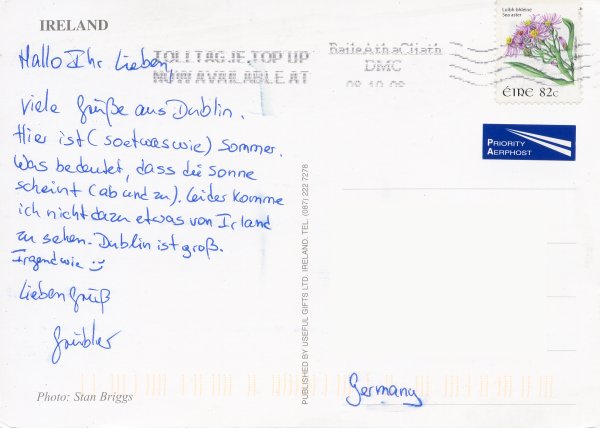 IRELAND
Hallo Ihr Lieben,
viele Grüße aus Dublin.
Hier ist (soetwas wie) Sommer.
Was bedeutet, dass die Sonne
scheint (ab und zu). Leider komme
ich nicht dazu etwas von Irland
zu sehen. Dublin ist groß.
Irgendwie :)
Lieben Gruß
Photo: Stan Briggs
PUBLISHED BY USEFUL GIFTS LTD. IRELAND. TEL. (087) 222 7278
TOLLTAG.IE, TOP UP
NOW AVAILABLE AT
Baile Átha Cliath
DMC
Luibh bhléine
Sea aster
ÉIRE 82c
PRIORITY
AERPHOST
Germany